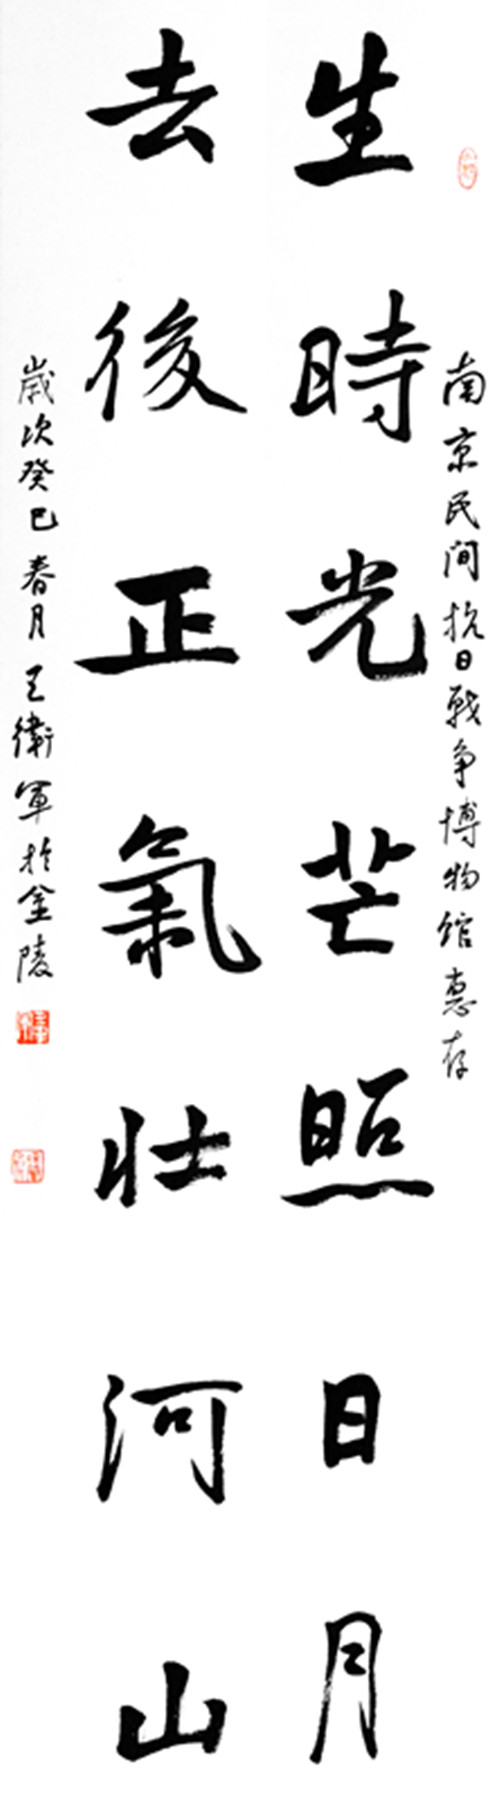 南京民间抗日戰争博物馆惠存
生時光芒照日月
去後正氣壯河山
歲次癸巳春月王衛軍於金陵